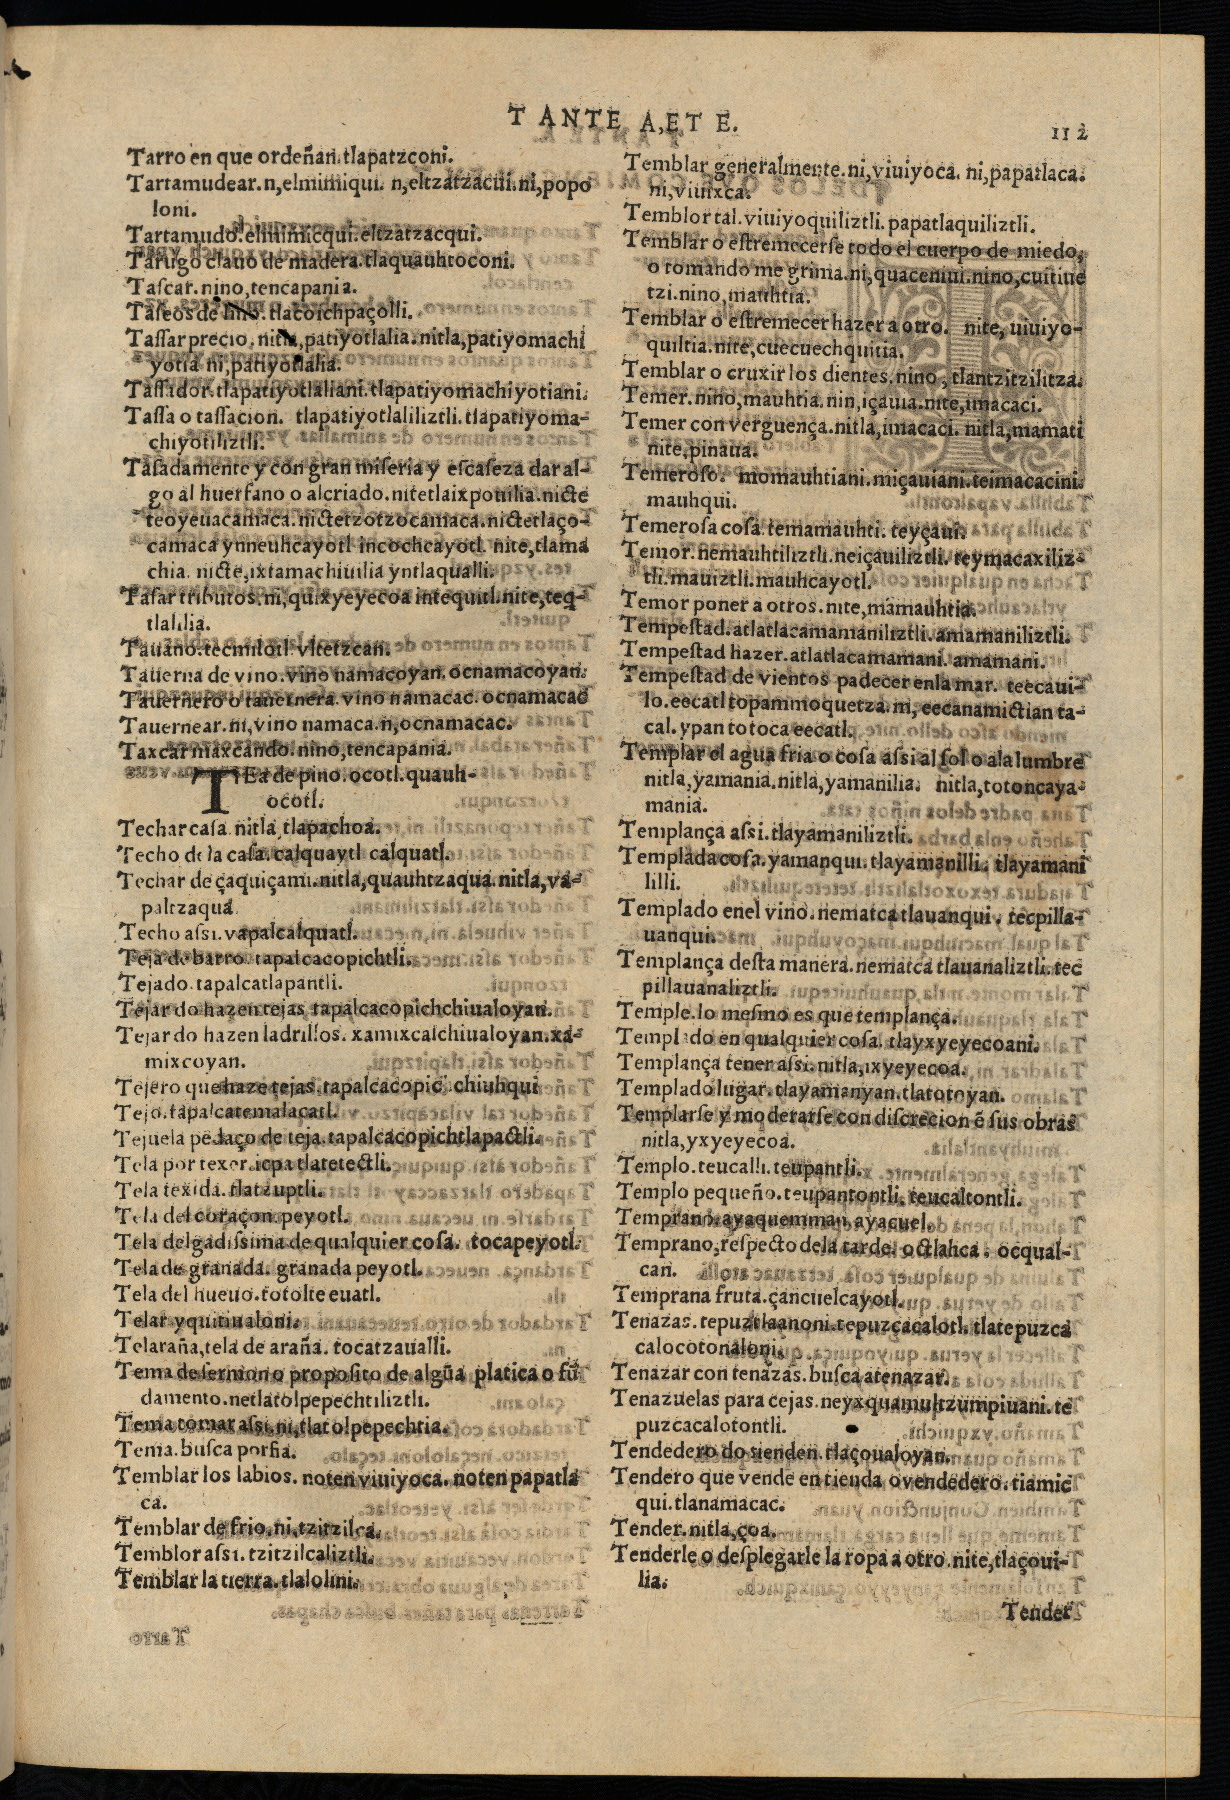 T ANTE A, ET E.
112
Tarro en que ordeñan. tlapatzconi.
Tartamudear. n, elmimiqui. n, eltzatzacuii. ni, popo
loni.
Tartamudo. elmimicqui. eltzatzacqui.
Tarugo clauo de madera. tlaquauhtoconi.
Tascar. nino, tencapania.
Taseos de lino. tlacoichpaçolli.
Tassar precio. nitla, patiyotlalia. nitla, patiyomachi
yotia ni, patiyotlalia.
Tassador. tlapatiyotlaliani. tlapatiyomachiyotiani.
Tassa o tassacion. tlapatiyotlaliliztli. tlapatiyoma-
chiyotiliztli.
Tasadamente y con gran miseria y escaseza dar al-
go al huerfano o al criado. nitetlaixpouilia. nicte
teoyeuacamaca. nictetzotzocamaca. nictetlaço-
camaca ynneuhcayotl incochcayotl. nite, tlama
chia. nicte, ixtamachiuilia yntlaqualli.
Tasar tributos. ni, quixyeyecoa intequitl. nite, teq-
tlalilia.
Tauano. tecmilotl vitetzcan.
Tauerna de vino. vino namacoyan. ocnamacoyan.
Tauernero o tauernera. vino namacac. ocnamacac
Tauernear. ni, vino namaca. n, ocnamacac.
Taxcar naxcando. nino, tencapania.
TEa de pino. ocotl. quauh-
ocotl.
Techar casa. nitla, tlapachoa.
Techo de la casa. calquaytl calquatl.
Techar de çaquiçami. nitla, quauhtzaqua. nitla, va-
paltzaqua
Techo assi. vapalcalquatl.
Teja de barro. tapalcacopichtli.
Tejado. tapalcatlapantli.
Tejar do hazen tejas. tapalcacopichchiualoyan.
Tejar do hazen ladrillos. xamixcalchiualoyan. xa-
mixcoyan.
Tejero que haze tejas. tapalcacopic. chiuhqui
Tejo. tapalcatemalacatl.
Tejuela pedaço de teja. tapalcacopichtlapactli.
Tela por texer. icpa tlatetectli.
Tela texida. tlatzuptli.
Tela del coraçon. peyotl.
Tela delgadissima de qualquier cosa. tocapeyotl.
Tela de granada. granada peyotl.
Tela del hueuo. totolteeuatl.
Telar. yquitiualoni.
Telaraña, tela de araña. tocatzaualli.
Tema de sermon o proposito de algũa platica o fũ
damento. netlatolpepechtiliztli.
Tema tomar assi. ni, tlatolpepechtia.
Tema. busca porfia.
Temblar los labios. noten viuiyoca. noten papatla
ca.
Temblar de frio. ni, tzitzilca.
Temblor assi. tzitzilcaliztli.
Temblar la tierra. tlalolini.
Temblar generalmente. ni, viuiyoca. ni, papatlaca.
ni, viuixca.
Temblor tal. viuiyoquiliztli. papatlaquiliztli.
Temblar o estremecerse todo el cuerpo de miedo,
o tomando me grima. ni, quaceniui. nino, cuitiue
tzi. nino, mauhtia.
Temblar o estremecer hazer a otro. nite, uiuiyo-
quiltia. nite, cuecuechquitia.
Temblar o cruxir los dientes. nino, tlantzitzilitza.
Temer. nino, mauhtia. nin, içauia. nite, imacaci.
Temer con verguença. nitla, imacaci. nitla, mamati
nite, pinaua.
Temeroso. momauhtiani. miçauiani. teimacacini.
mauhqui.
Temerosa cosa. temamauhti. teyçaui.
Temor. nemauhtiliztli. neiçauiliztli. teymacaxiliz-
tli. mauiztli. mauhcayotl.
Temor poner a otros. nite, mamauhtia.
Tempestad. atlatlacamamaniliztli. amamaniliztli.
Tempestad hazer. atlatlacamamani. amamani.
Tempestad de vientos padecer enla mar. teecaui-
lo. eecatl topammoquetza. m, eecanamictianta-
cal. ypan totoca eecatl.
Templar el agua fria o cosa assi al sol o ala lumbre
nitla, yamania. nitla, yamanilia. nitla, totoncaya-
mania.
Templança assi. tlayamaniliztli.
Templada cosa. yamanqui. tlayamanilli. tlayamani
lilli.
Templado enel vino. nematca tlauanqui. tecpilla-
uanqui.
Templança desta manera. nematca tlauanaliztli. tec
pillauanaliztli.
Temple. lo mesmo es que templança.
Templado en qualquier cosa. tlayxyeyecoani.
Templança tener assi. nitla, ixyeyecoa.
Templado lugar. tlayamanyan. tlatotoyan.
Templarse y moderarse con discrecion ẽ sus obras
nitla, yxyeyecoa.
Templo. teucalli. teupantli.
Templo pequeño. teupantontli. teucaltontli.
Temprano. ayaquemman. ayacuel.
Temprano, respecto dela tarde. octlahca. ocqual-
can.
Temprana fruta. çancuelcayotl.
Tenazas. tepuztlaanoni. tepuzcacalotl. tlatepuzca
calocotonaloni.
Tenazar con tenazas. busca atenazar.
Tenazuelas para cejas. neyxquamultzumpiuani. te
puzcacalotontli.
Tendedero do tienden. tlaçoualoyan.
Tendero que vende en tienda o vendedero. tiamic
qui. tlanamacac.
Tender. nitla, çoa.
Tenderle o desplegarle la ropa a otro. nite, tlaçoui-
lia.
Tender